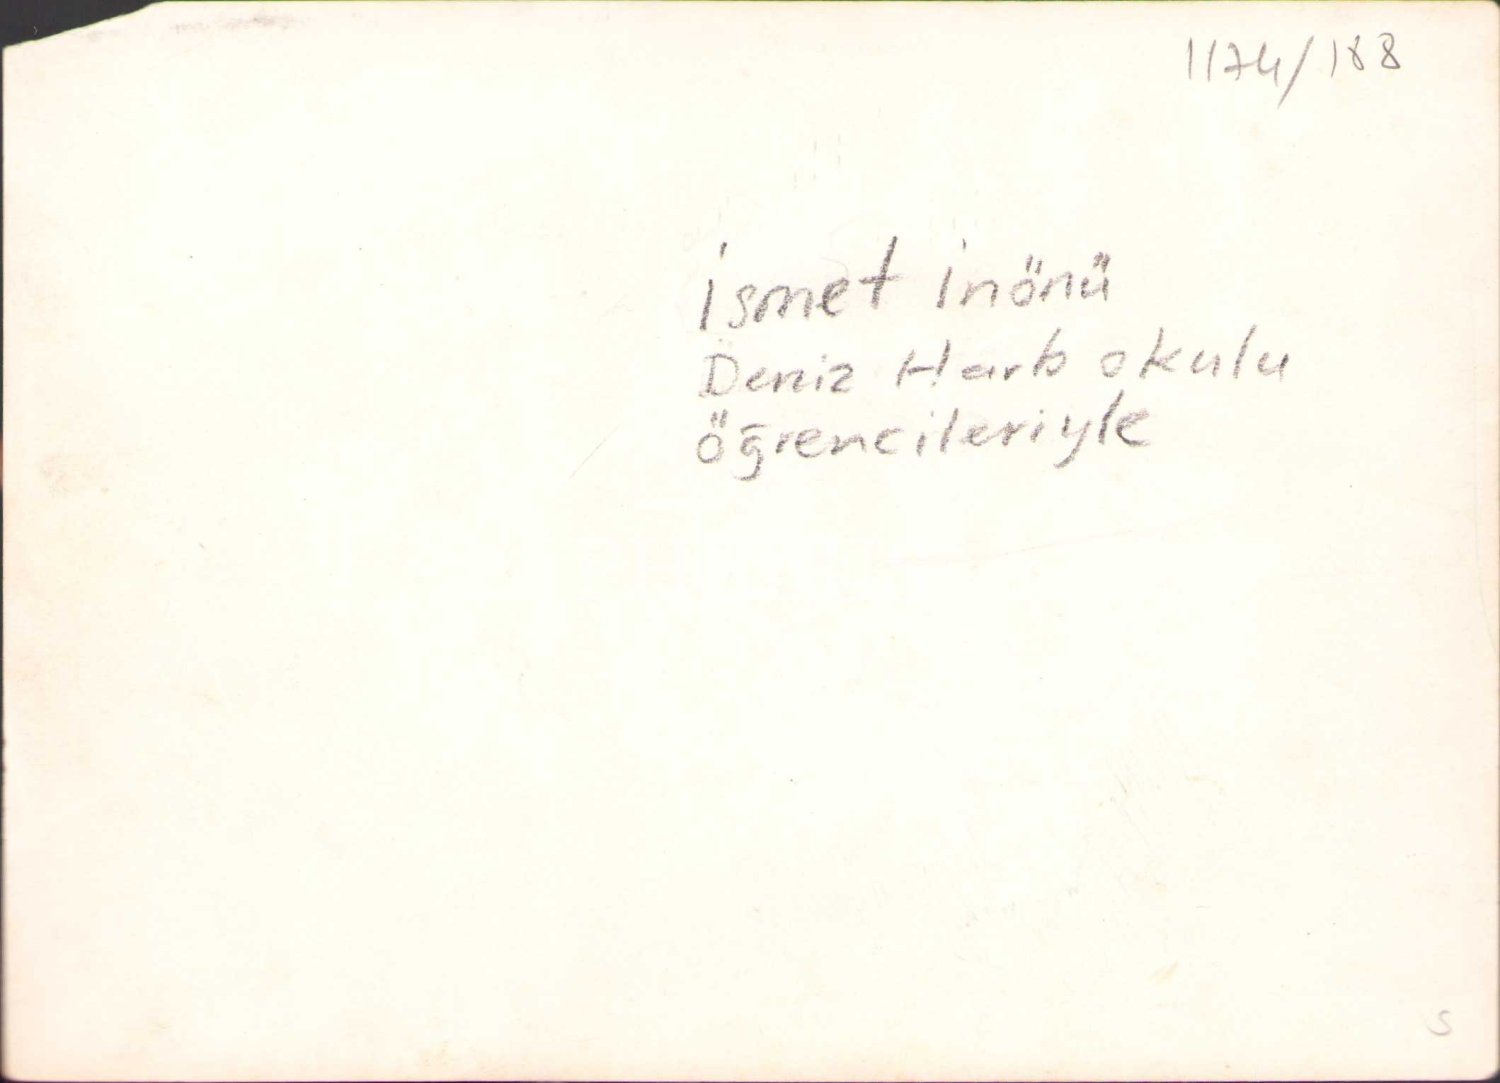 1174/188
İsmet İnönü
Deniz Harb okulu
öğrencileriyle
S